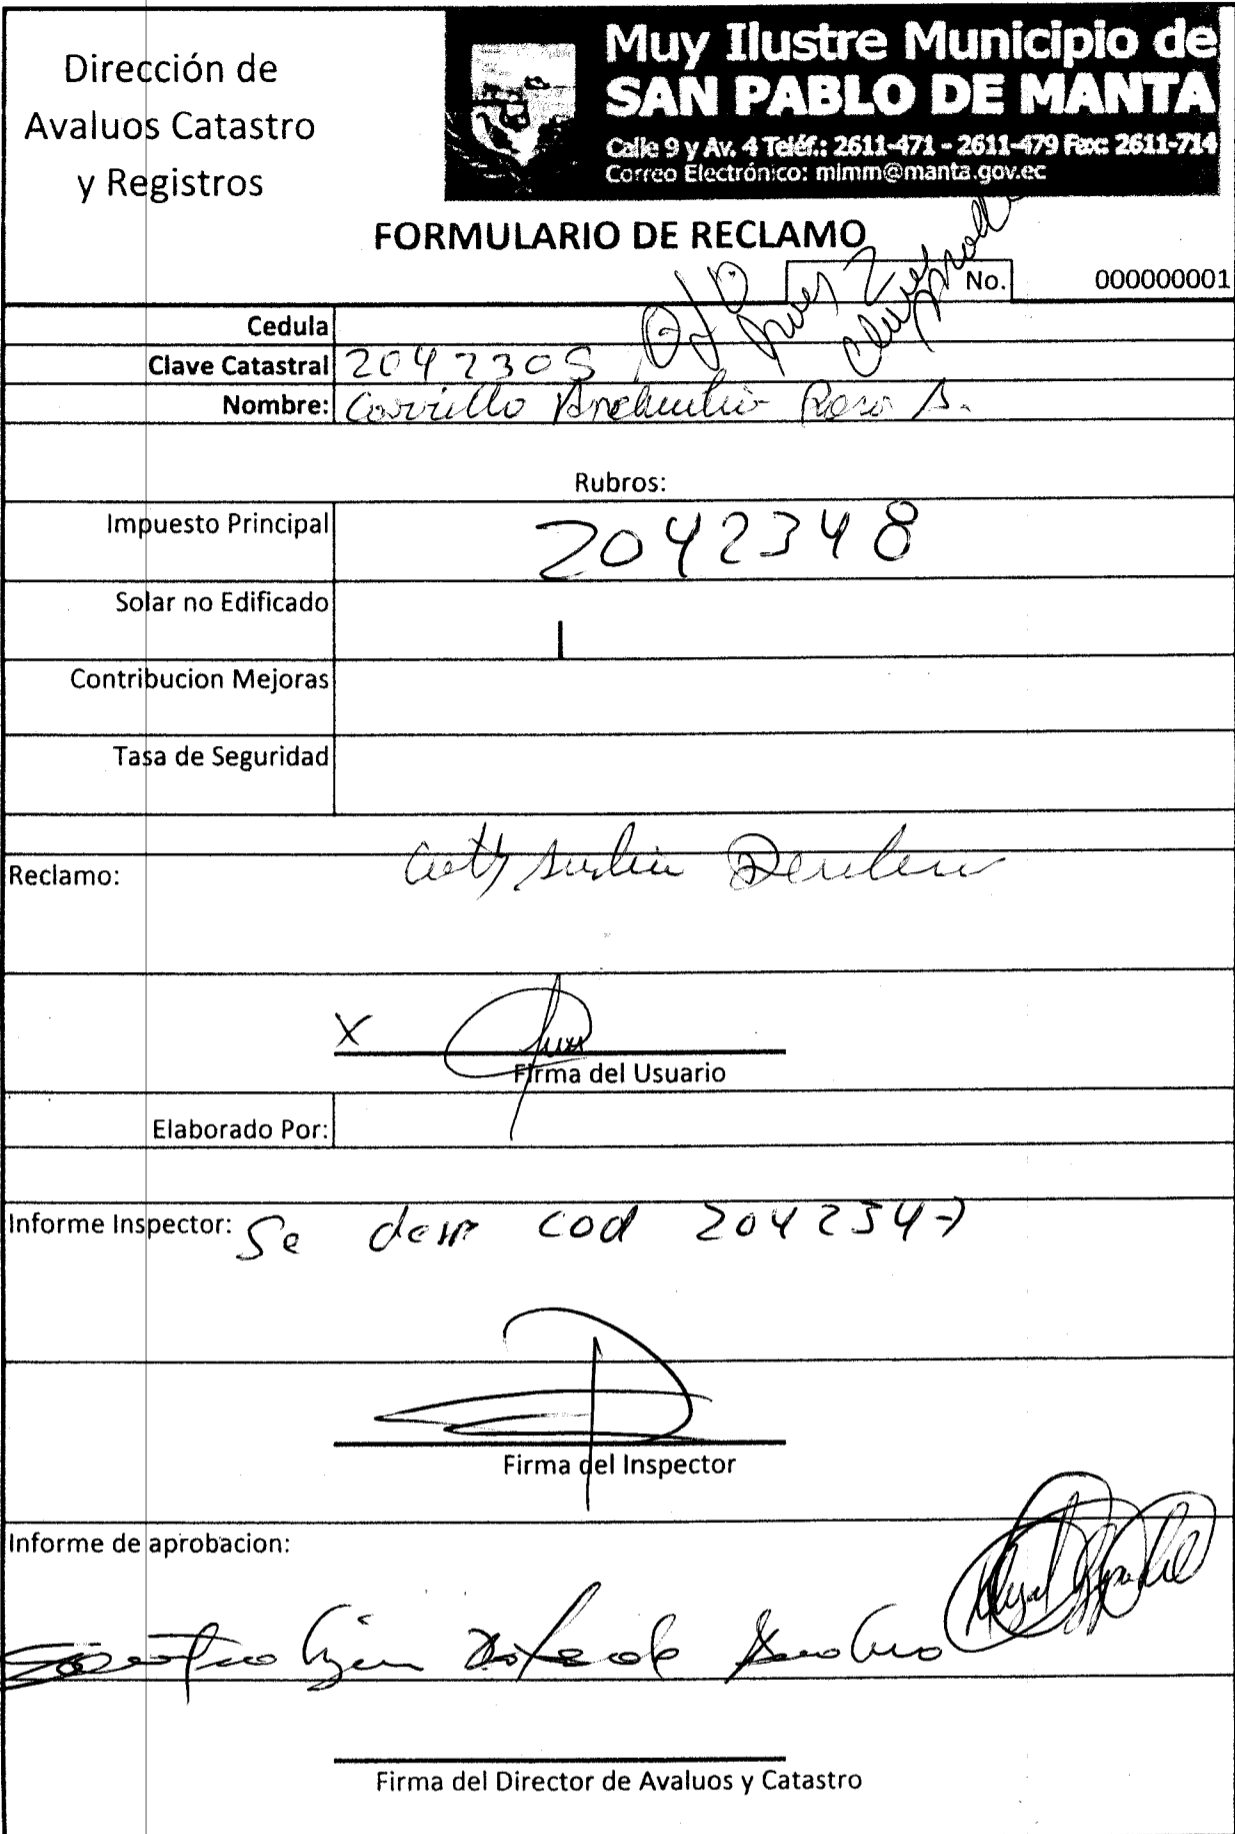 Dirección de
Avaluos Catastro
y Registros
Muy Ilustre Municipio de
SAN PABLO DE MANTA
Calle 9 y Av. 4 Teléf.: 2611-471 - 2611-479 Fax: 2611-714
Correo Electrónico: mimm@manta.gov.ec
FORMULARIO DE RECLAMO
No. 000000001
Cedula
Clave Catastral 2042305
Nombre: Carrillo Rosa A.
Rubros:
Impuesto Principal 2042348
Solar no Edificado
Contribucion Mejoras
Tasa de Seguridad
Reclamo:
X
Firma del Usuario
Elaborado Por:
Informe Inspector: Se cod 2042347
Firma del Inspector
Informe de aprobacion:
Firma del Director de Avaluos y Catastro